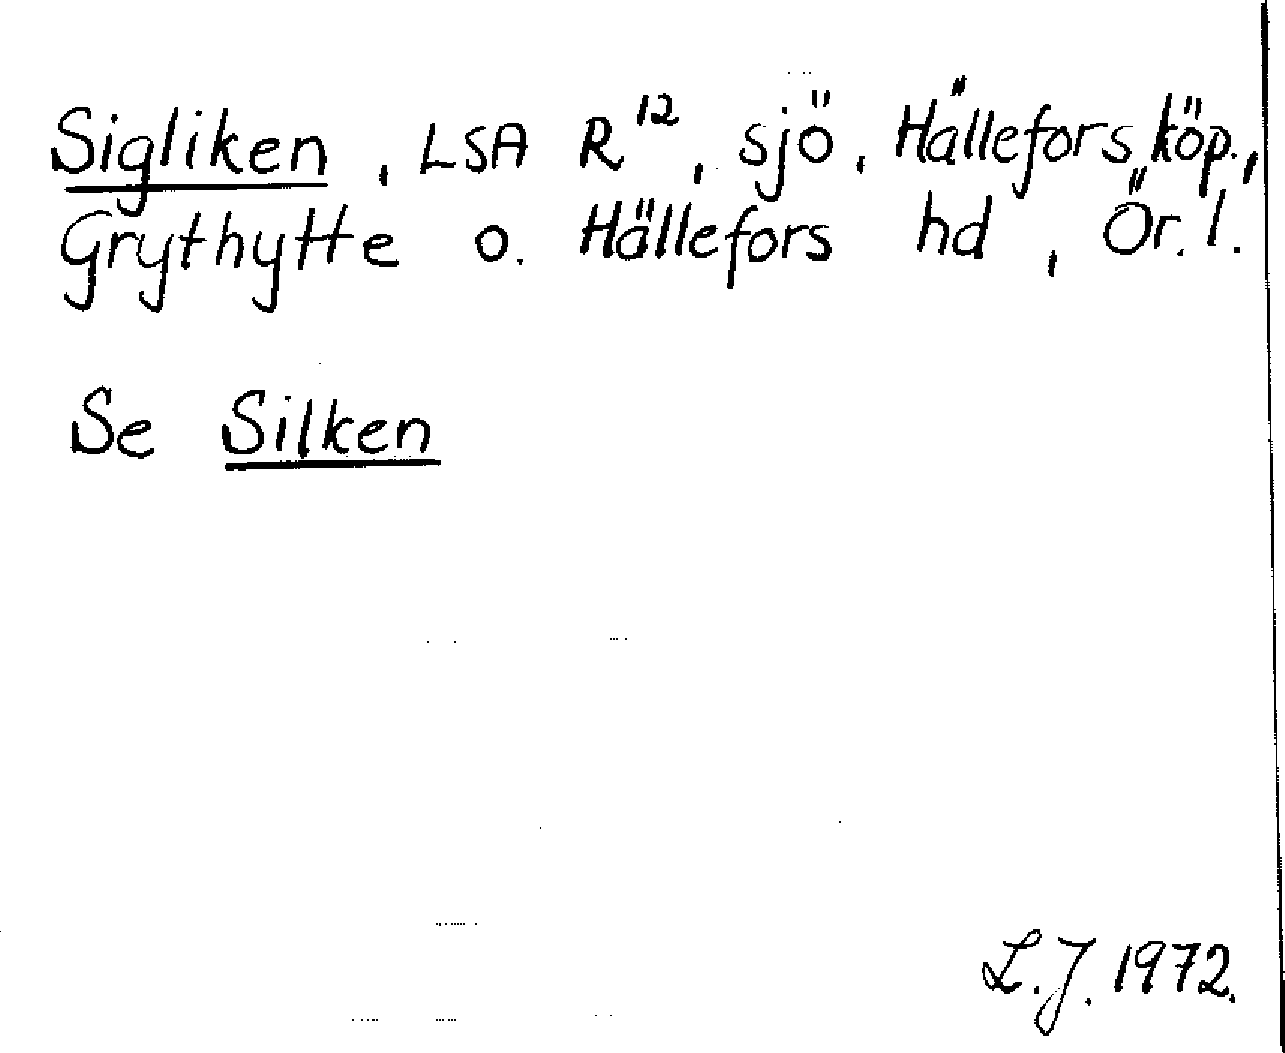 Sigliken, LSA R¹², sjö, Hällefors köp.,
Grythytte o. Hällefors hd, Ör. l.
Se Silken
L.J. 1972.